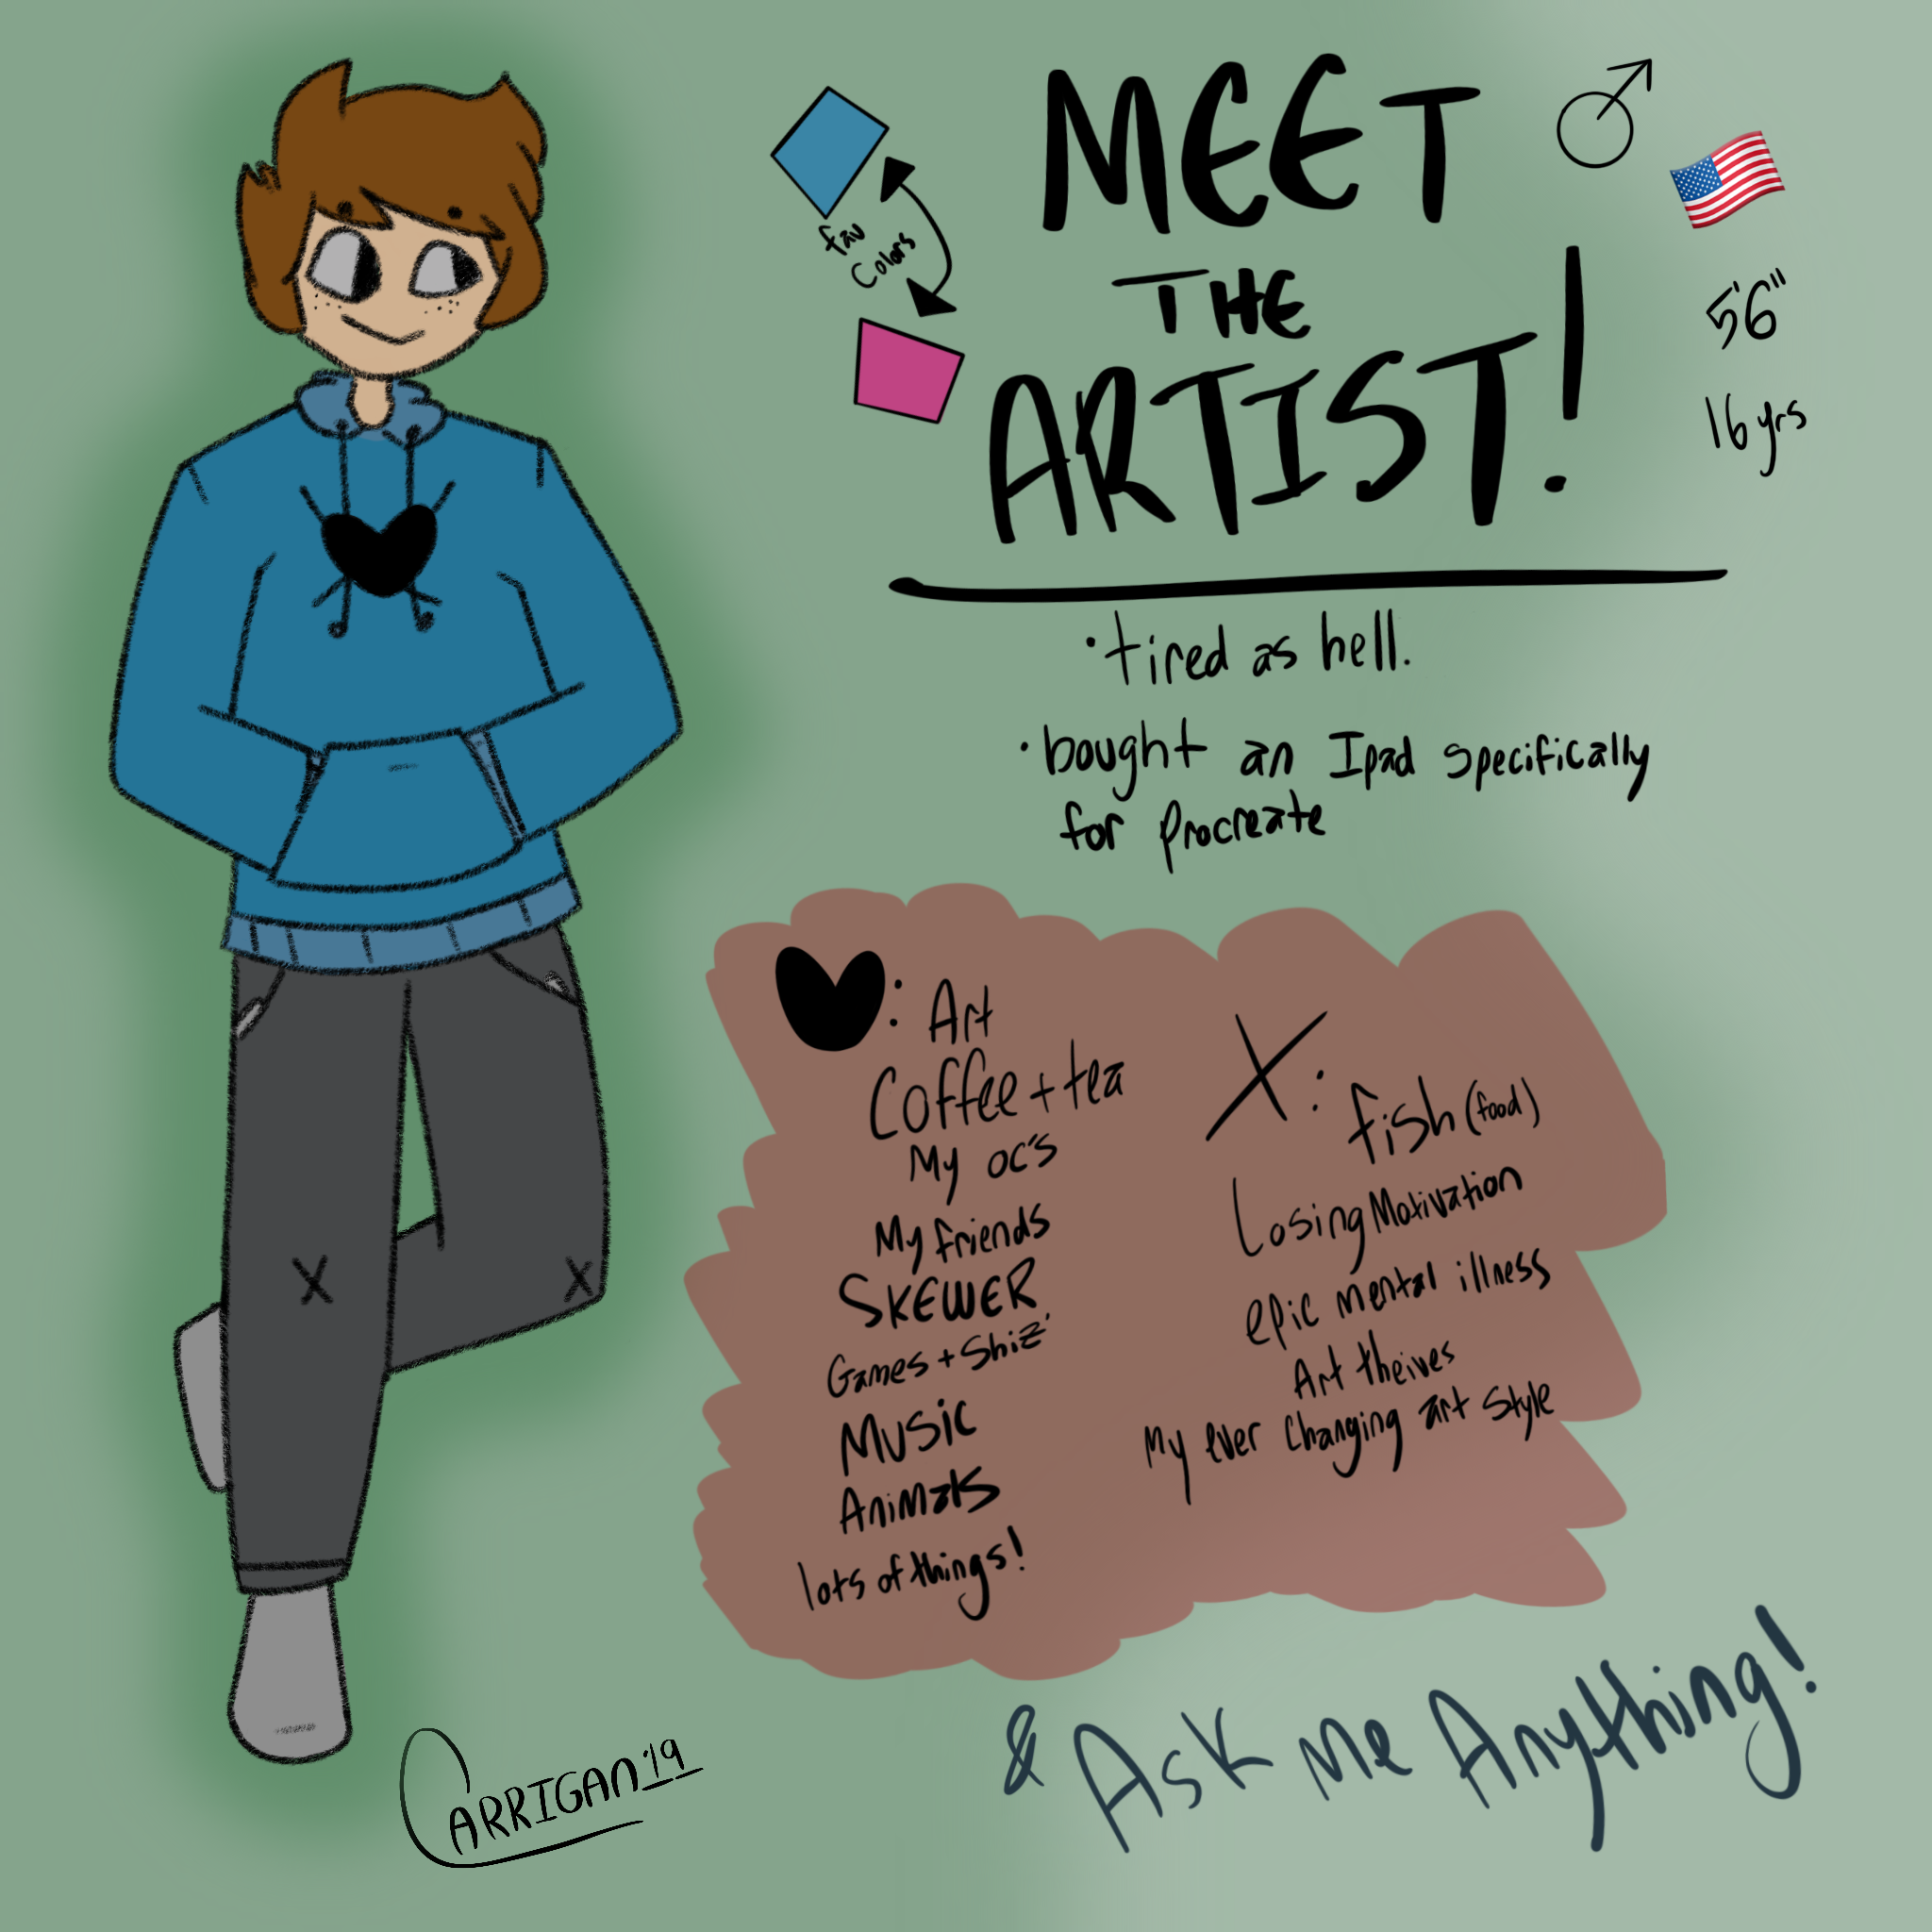 MEET
THE
ARTIST!
fav
Colors
5'6"
16 yrs
·tired as hell.
·bought an Ipad specifically
for procreate
: Art
Coffee + tea
My oc's
My friends
SKEWER
Games + Shiz
Music
Animals
lots of things!
X: fish (food)
Losing Motivation
epic mental illness
Art theives
My ever changing art style
& Ask Me Anything!
CARRIGAN '19